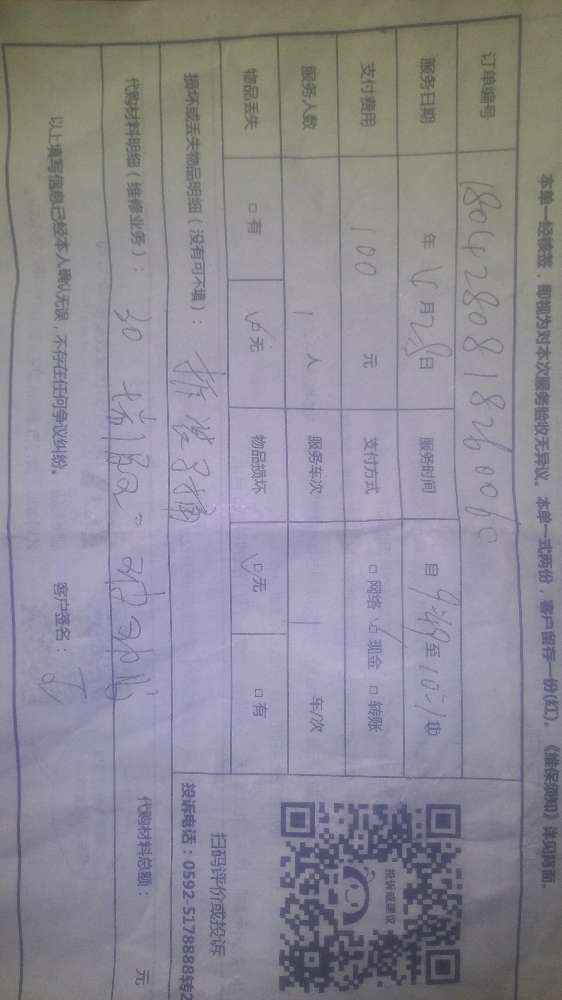 本单一经核签，即视为对本次服务验收无异议。本单一式两份，客户留存一份(红)。《维保须知》详见背面。
订单编号 180428081826006
服务日期 年 月28日 服务时间 自9:49至10:
支付费用 100 元 支付方式 □网络 ☑现金 □转账
服务人数 1 人 服务车次 车/次
物品丢失 □有 ☑无 物品损坏 ☑无 □有
损坏或丢失物品明细（没有可不填）：
代购材料明细（维修业务）： 30
代购材料总额： 元
以上填写信息已经本人确认无误，不存在任何争议纠纷。 客户签名：
投诉或建议
扫码评价或投诉
投诉电话：0592 5178888转2